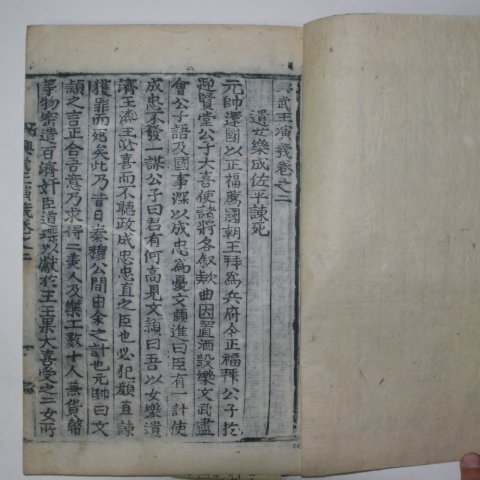 武王演義卷之二
遺女樂成佐平諫死
元帥還國以正福薦國朝王拜為兵府令正福拜公子於
迎賢堂公子大喜使諸將各叙款曲因置酒設樂文武盡
會公子語及國事深以成忠為憂文顙進曰臣有一計使
成忠不發一謀公子曰君有何高見文顙曰吾以女樂遺
濟王濟王必喜而不聽政成忠忠直之臣也必犯顏直諫
獲罪而死矣此乃昔日秦穆公間由余之計也元帥曰文
顙之言正合吾意乃求得二美人及樂工數十人兼貨幣
等物密遣百濟奸臣道琛以獻於王王果大喜學之二女所
演義卷之二